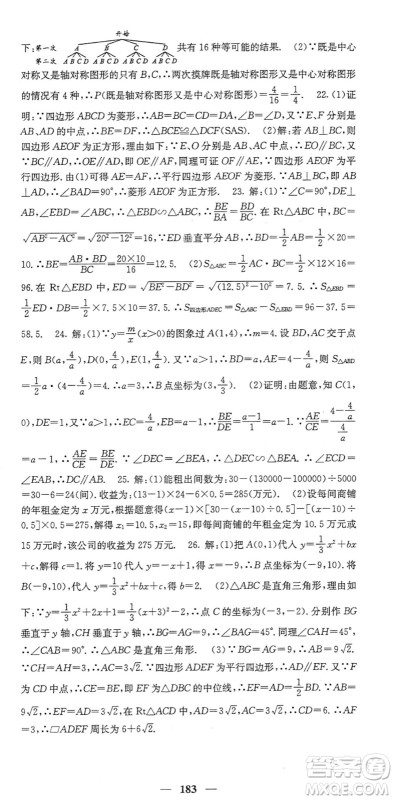 开始
下:第一次 A B C D 共有16种等可能的结果. (2)∵既是中心
第二次 ABCD ABCD ABCD ABCD
对称又是轴对称图形的只有B,C,∴两次摸牌既是轴对称图形又是中心对称图形
的情况有4种,∴P(既是轴对称图形又是中心对称图形)=4/16=1/4. 22.(1)证
明:∵四边形ABCD为菱形,∴AB=BC=CD=DA,∠B=∠D,又∵E,F分别是
AB,AD的中点,∴BE=DF,∴△BCE≌△DCF(SAS). (2)解:若AB⊥BC,则
四边形AEOF为正方形,理由如下:∵E,O分别是AB,AC的中点,∴EO∥BC,又
BC∥AD,∴OE∥AD,即:OE∥AF,同理可证OF∥AE,所以四边形AEOF为平
行四边形,由(1)可得AE=AF,所以平行四边形AEOF为菱形,∵BC⊥AB,
∴∠BAD=90°,∴菱形AEOF为正方形. 23. 解:(1)∵∠EBD=∠ABC,∠A=
∠BED,∴△EBD∽△ABC,∴BE/BA=BD/BC. 在Rt△ABC中,BC=
√(AB²−AC²)=√(20²−12²)=16. ∵ED垂直平分AB,∴BD=1/2AB=1/2×20=
10.∴BE=AB·BD/BC=20×10/16=12.5. (2)S△ABC=1/2×AC·BC=1/2×12×16=
96.在Rt△EBD中,ED=√(BE²−BD²)=√((12.5)²−10²)=7.5. ∴S△EBD=1/2×ED
×BD=1/2×7.5×10=37.5.∴S四边形ADEC=S△ABC−S△EBD=96−37.5=
58.5. 24. 解:(1)∵y=m/x(x>0)的图象过A(1,4),∴m=4.设BD,AC交于点
E,则B(a,4/a),D(0,4/a),E(1,4/a).∵a>1,∴BD=a,AE=4−4/a,则S△ABD=
1/2a·(4−4/a)=4.∴a=3,∴B点坐标为(3,4/3). (2)证明:由题意,知C(1,
0),DE=1,又∵a>1,∴EC=4/a,BE=a−1,∴BE/DE=(a−1)/1=a−1. ∵AE/CE=(4−4/a)/(4/a)
=a−1,∴AE/CE=BE/DE. 又∵∠DEC=∠BEA,∴△DEC∽△BEA,∴∠ECD=
∠EAB,∴DC∥AB. 25. 解:(1)能租出间数为:30−(130000−100000)÷5000
=30−6=24(间),收益为:24×13−24×1−6×0.5=285(万元). (2)设每间商铺
的年租金定为x万元,则[30−(x−10)÷0.5]x−[30−(x−10)÷0.5]−[(x−10)÷
0.5]×0.5=275. 解得x₁=10.5,x₂=15. ∴每间商铺的年租金定为10.5万元或
15万元时,该公司的年收益为275万元. 26. 解:(1)把点A(0,1)代入y=1/3x²+
bx+c,解得c=1,把B(−9,10),代入y=1/3x²+bx+1,解得b=2,把A(0,1)、
B(−9,10),代入y=1/3x²+bx+c. (2)△ABC是直角三角形,是直角三角形,理由如
下:∵y=1/3x²+2x+1=1/3(x+3)²−2,∴点C的坐标为(−3,−2). 分别作BG
垂直于y轴,CH垂直于y轴,∵BG=AG=9,∴∠BAG=45°,同理可得∠CAH=45°,
∴∠CAB=90°,∴△ABC是直角三角形. ∵BG=AG=9,∴AB=9√2,
∵CH=AH=3,∴AC=3√2,∵四边形ADEF为平行四边形,∴AD∥EF,又∵F
为AB的中点,∴EF为△BCD的中位线,∴EF=1/2CD. ∵EF=AD,∵AB=
9√2,EF=1/2CD,∴AD=3√2,在Rt△ACD中,AD=3√2,AC=3√2,∴CD=6,
∴EF=3,∴▱ADEF周长为6+6√2.
183